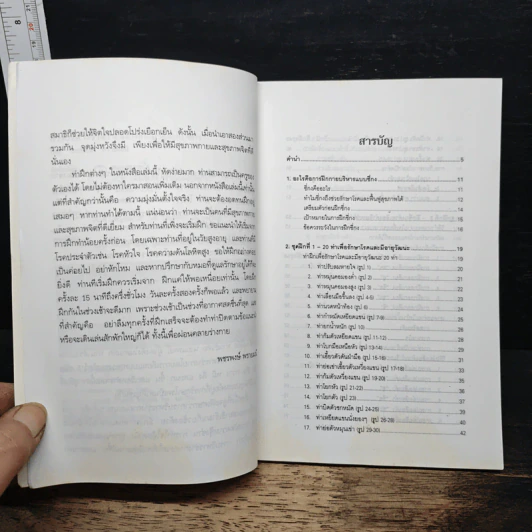 สมาธิก็ช่วยให้จิตใจปลอดโปร่งเยือกเย็น ดังนั้น เมื่อนำเอาสองส่วนมา
รวมกัน จุดมุ่งหวังจึงมี เพียงเพื่อให้มีสุขภาพกายและสุขภาพจิตที่ดี
นั่นเอง
ท่าฝึกต่างๆ ในหนังสือเล่มนี้ หัดง่ายมาก ท่านสามารถเป็นครูของ
ตัวเองได้ โดยไม่ต้องหาใครมาสอนเพิ่มเติม นอกจากหนังสือเล่มนี้เท่านั้น
แต่ที่สำคัญกว่านั้นคือ ความมุ่งมั่นตั้งใจจริง ท่านจะต้องอดทนฝึกอยู่
เสมอๆ หากท่านทำได้ตามนี้ แน่นอนว่า ท่านจะเป็นคนที่มีสุขภาพกาย
และสุขภาพจิตที่ดีเยี่ยม สำหรับท่านที่เพิ่งจะเริ่มฝึก ขอแนะนำให้เริ่มจาก
การฝึกท่าน้อยครั้งก่อน โดยเฉพาะท่านที่อยู่ในวัยสูงอายุ และท่านที่มี
โรคประจำตัวเช่น โรคหัวใจ โรคความดันโลหิตสูง ขอให้ฝึกอย่างค่อย
เป็นค่อยไป อย่าหักโหม และหากปรึกษากับหมอที่ดูแลรักษาอยู่ได้ก็จะ
ยิ่งดี ท่านที่เริ่มฝึกควรเริ่มจาก ฝึกแค่ให้พอเหนื่อยเท่านั้น โดยฝึก
ครั้งละ 15 นาทีถึงครึ่งชั่วโมง วันละครั้งสองครั้งก็พอแล้ว และพยายาม
ฝึกกันในช่วงเช้าจะดีมาก เพราะช่วงเช้าเป็นช่วงที่อากาศสดชื่นที่สุด และ
ที่สำคัญคือ อย่าลืมทุกครั้งที่ฝึกเสร็จจะต้องทำท่าปิดตามข้อแนะนำ
หรือจะเดินเล่นสักพักใหญ่ก็ได้ ทั้งนี้เพื่อผ่อนคลายร่างกาย
สารบัญ
คำนำ 5
1. อะไรคือการฝึกกายบริหารแบบชี่กง 11
ชี่กงคืออะไร 11
ทำไมชี่กงถึงช่วยรักษาโรคและฟื้นฟูสุขภาพได้
เตรียมตัวก่อนฝึกชี่กง
เป้าหมายในการฝึกชี่กง
ข้อควรระวังในการฝึกชี่กง
2. ชุดฝึกที่ 1 – 20 ท่าเพื่อรักษาโรคและมีอายุวัฒนะ 19
ท่าฝึกเพื่อรักษาโรคและมีอายุวัฒนะ 20 ท่า
1. ท่าปรับลมหายใจ (รูป 1)
2. ท่าหมุนคอเอง
3. ท่าหมุนคอเอง
4. ท่าเลื่อนมือขึ้นลง (รูป 4-5)
5. ท่านวดหน้าท้อง (รูป 6)
6. ท่ากำหมัดเหยียดแขน
7. ท่ายกน้ำหนัก (รูป 10)
8. ท่าก้มตัวเหยียดแขน
9. ท่าโบกมือเหนือหัว
10. ท่าเอี้ยวตัวดันฝ่ามือ (รูป 15-16)
11. ท่าย่อเข่าเอี้ยวตัวเหวี่ยงแขน (รูป 17-18)
12. ท่าก้มตัวเหวี่ยงแขน (รูป 19-20)
13. ท่าโยกหัว (รูป 21-22)
14. ท่าโยกตัว (รูป 23)
15. ท่าบิดตัวชกหมัด (รูป 24-25)
16. ท่าเหยียดแขนนั่งยองๆ (รูป 26-28)
17. ท่าย่อตัวหมุนเข่า (รูป 29-30) 42